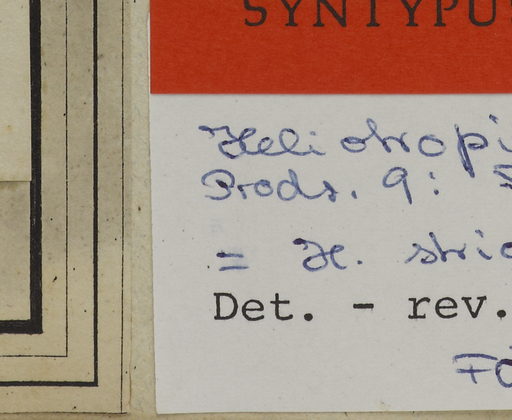 SYNTYPUS
Heliotropi
Prodr. 9: 5
= H. stric
Det. - rev.
FÖ